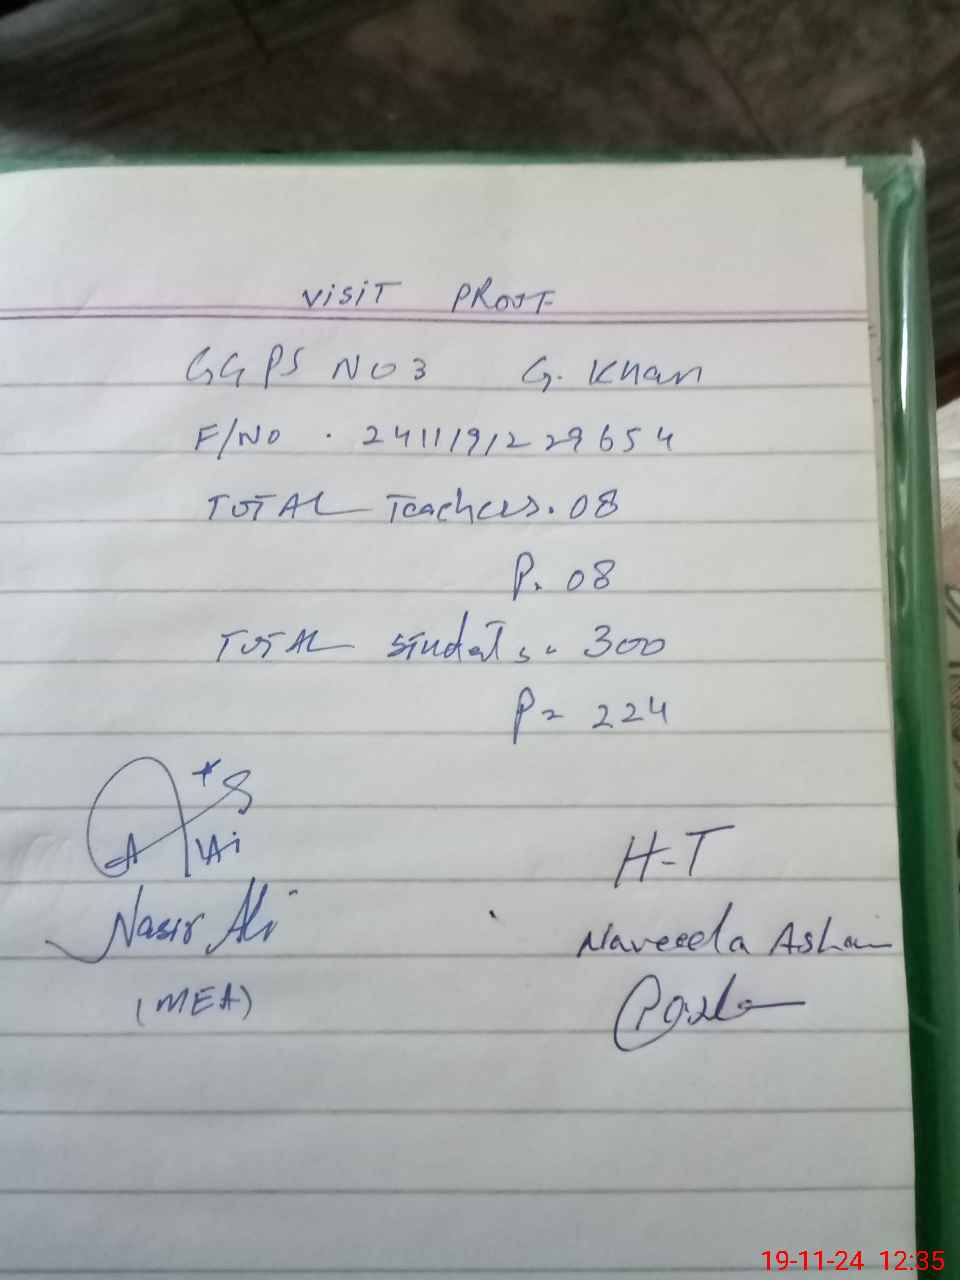 VISIT PROOF
GGPS NO 3 G. Khan
F/NO . 241119122 29654
TOTAL Teachers. 08
P. 08
TOTAL Students. 300
P= 224
H-T
Nasir Ali
Naveeda
(MEA)
19-11-24 12:35